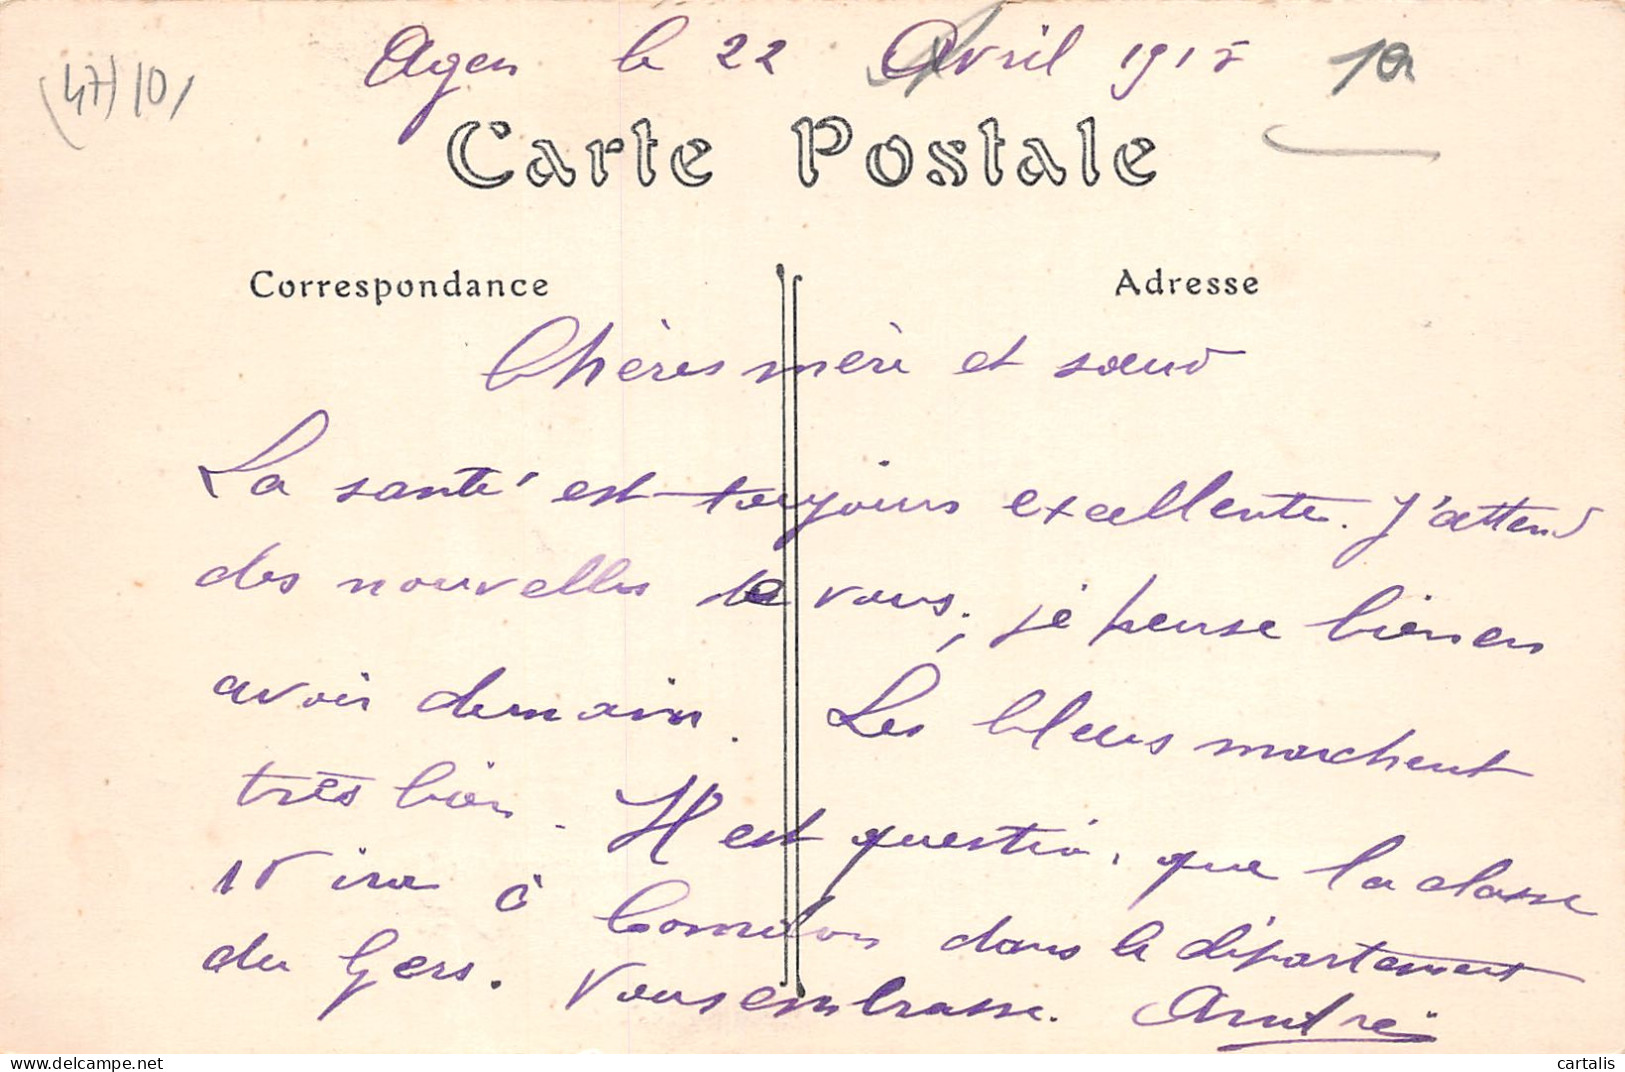 (47)101
Agen le 22 Avril 1915
10
Carte Postale
Correspondance
Adresse
Chères mère et sœur
La santé est toujours excellente. J'attend
des nouvelles de vous, je pense bien en
avoir demain. Les bleus marchent
très bien. Il est question, que la classe
15 ira à dans le département
du Gers. Vous embrasse. André
cartalis